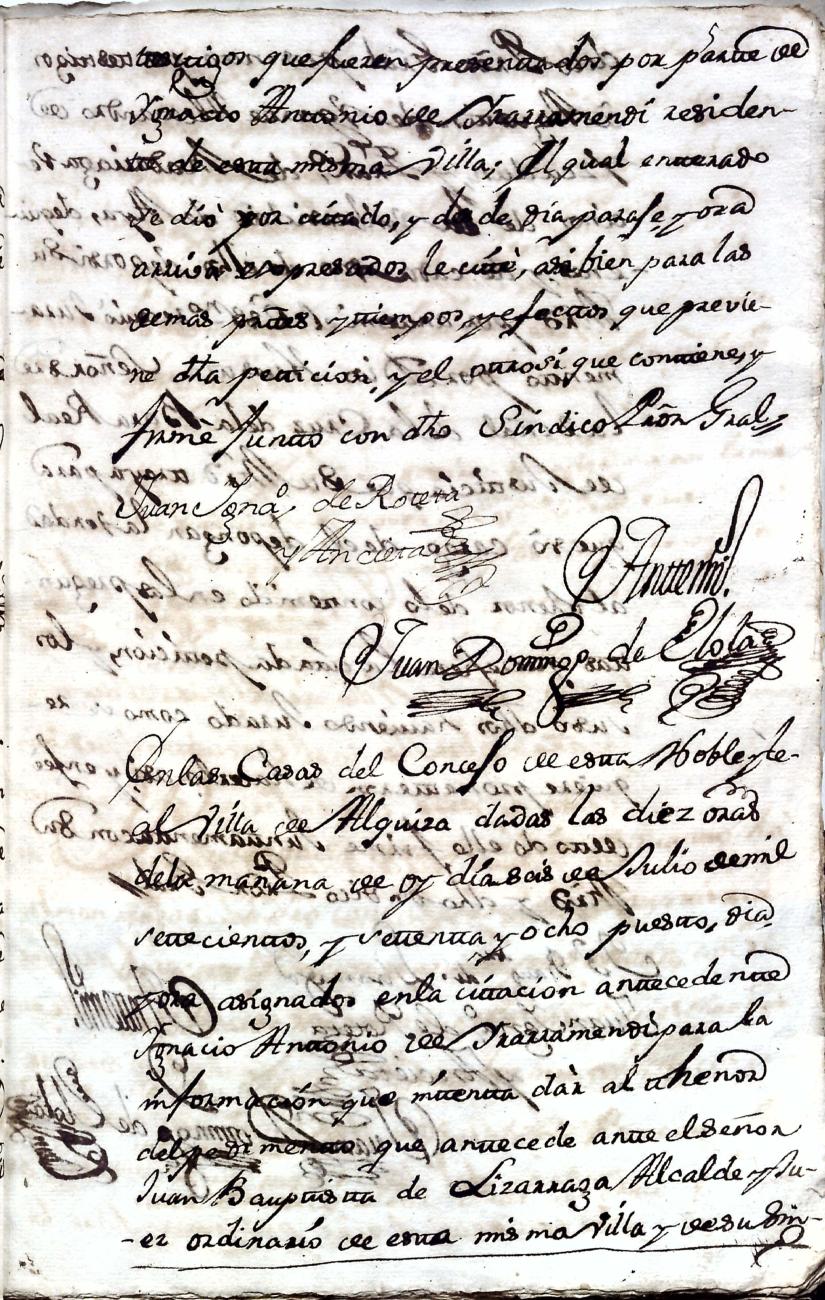 testigos que fueren presentados por parte de
Ygnacio Antonio de Yrarramendi residen-
te de esta misma Villa; El qual enterado
se dió por citado, y de
arriva expresados le cité, asi bien para las
demas partes y tiempos, y efectos que previe-
ne dha peticion, y el otrosi que contiene, y
firmé Juntto con dho Sindico Prõr Gral
Juan Ygnaº, de Roteta
y Ancieta
Anttemi.
Juan Domingo de Elola
En las Casas del Concejo de esta Noble y le-
al Villa de Alquiza dadas las diez oras
dela mañana de oy dia seis de Julio de mil
settecienttos, y settenta y ocho puesto, dia
y ora asignados enla cittacion anttecedentte
Ygnacio Antonio de Yrarramendi para la
informacion que intenta dàr al thenor
del pedimento que anttecede ante el Señor
Juan Bauptista de Lizarraga Alcalde y Ju-
ez ordinario de esta misma Villa y de su